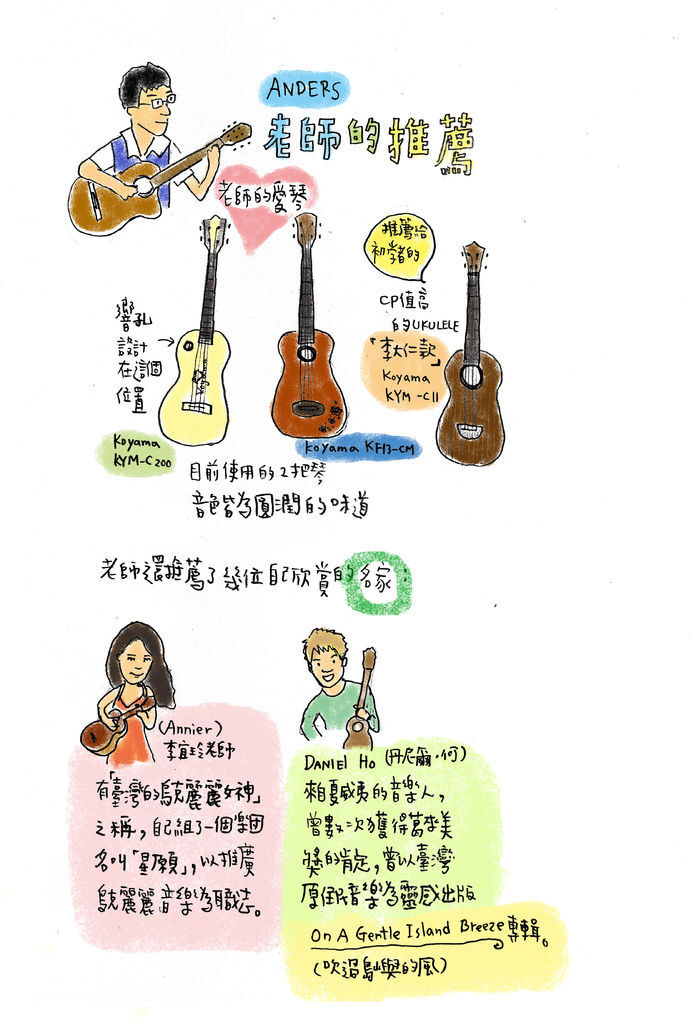 ANDERS
老師的推薦
老師的愛琴
推薦給
初學者的
CP值高
的UKULELE
「李大仁款」
Koyama
KYM-C11
響孔
設計
在這個
位置
Koyama
KYM-C200
Koyama KF13-CM
目前使用的2把琴
音色皆為圓潤的味道
老師還推薦了幾位自己欣賞的名家:
(Annier)
李宜珍老師
有「臺灣的烏克麗麗女神」
之稱,自己組了一個樂團
名叫「星願」,以推廣
烏克麗麗音樂為職志。
DANIEL Ho (丹尼爾·何)
來自夏威夷的音樂人,
曾數次獲得葛萊美
獎的肯定,曾以臺灣
原住民音樂為靈感出版
On A Gentle Island Breeze專輯。
(吹過島嶼的風)